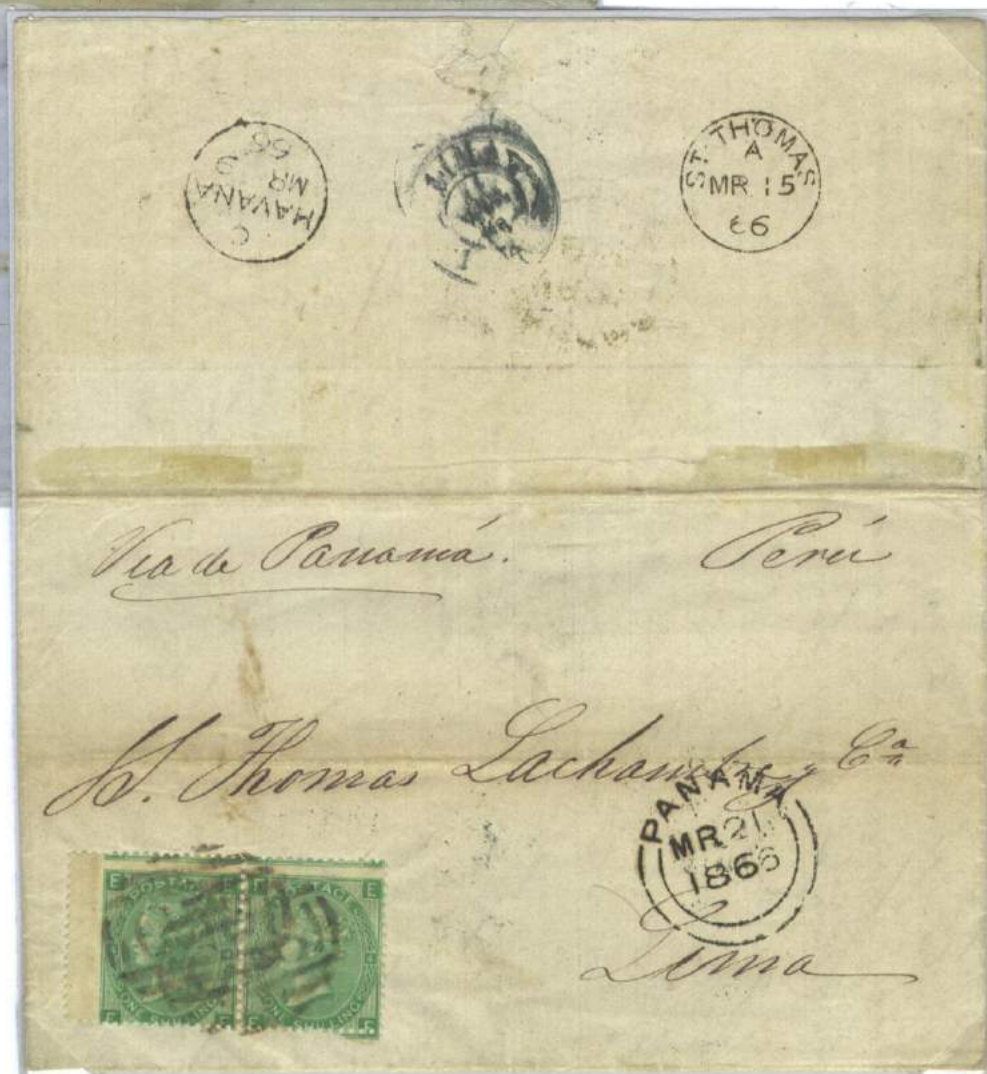 C
HAVANA
MR 9
66
LIMA
ST. THOMAS
A
MR 15
66
Via de Panamá. Perú
S. Thomas Lachambre y Cª
PANAMA
MR 21
1866
Lima
E POSTAGE E
E POSTAGE E
F ONE SHILLING E
F ONE SHILLING F